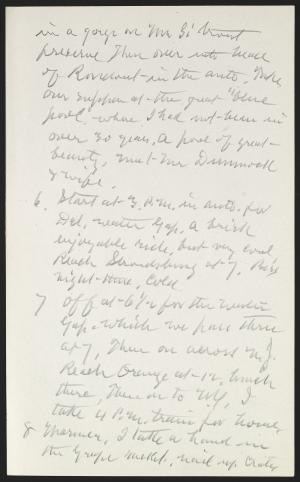 in a gorge on Mr G's trout
preserve. Then over into head
of Rondout in the auto. Take
our supper at the great "blue
pool," where I had not been in
over 30 years, a pool of great
beauty, meet Mr Dimmock
& wife.
6. Start at 3 P.M. in auto for
Del. Water Gap, a brisk
enjoyable ride, but very cool
Reach Stroudsburg at 7,
night there, Cold.
7 Off at 6½ for the Water
Gap, which we pass thro
at 7, Then on across N.J.
Reach Orange at 12, lunch
there, Then on to N.Y., I
take 4 P.M. train for home,
8 Warmer, I take a hand in
the Grape racket, nail up crates